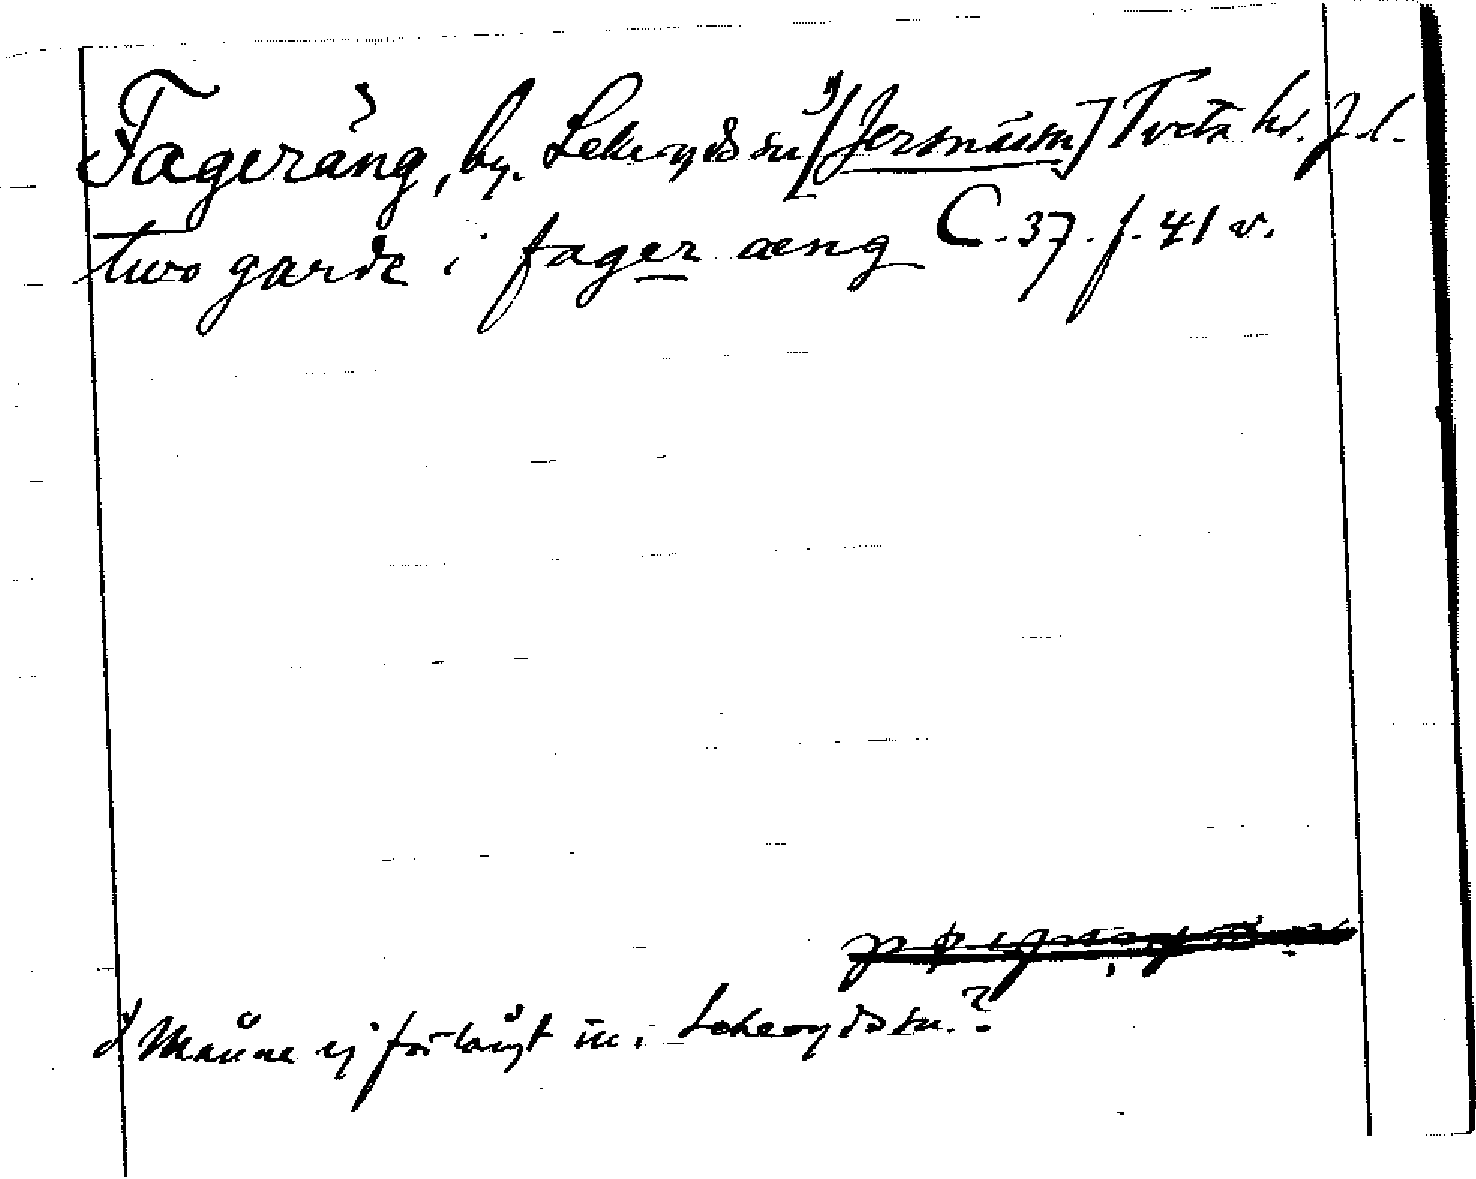 Fageräng, by. Lekeryds sn 1) [Jersnäs sn] Tveta hd. J. l.
two garda i fager æng C. 37. f. 41 v.
1) Månne ej för långt in i Lekeryds sn.?